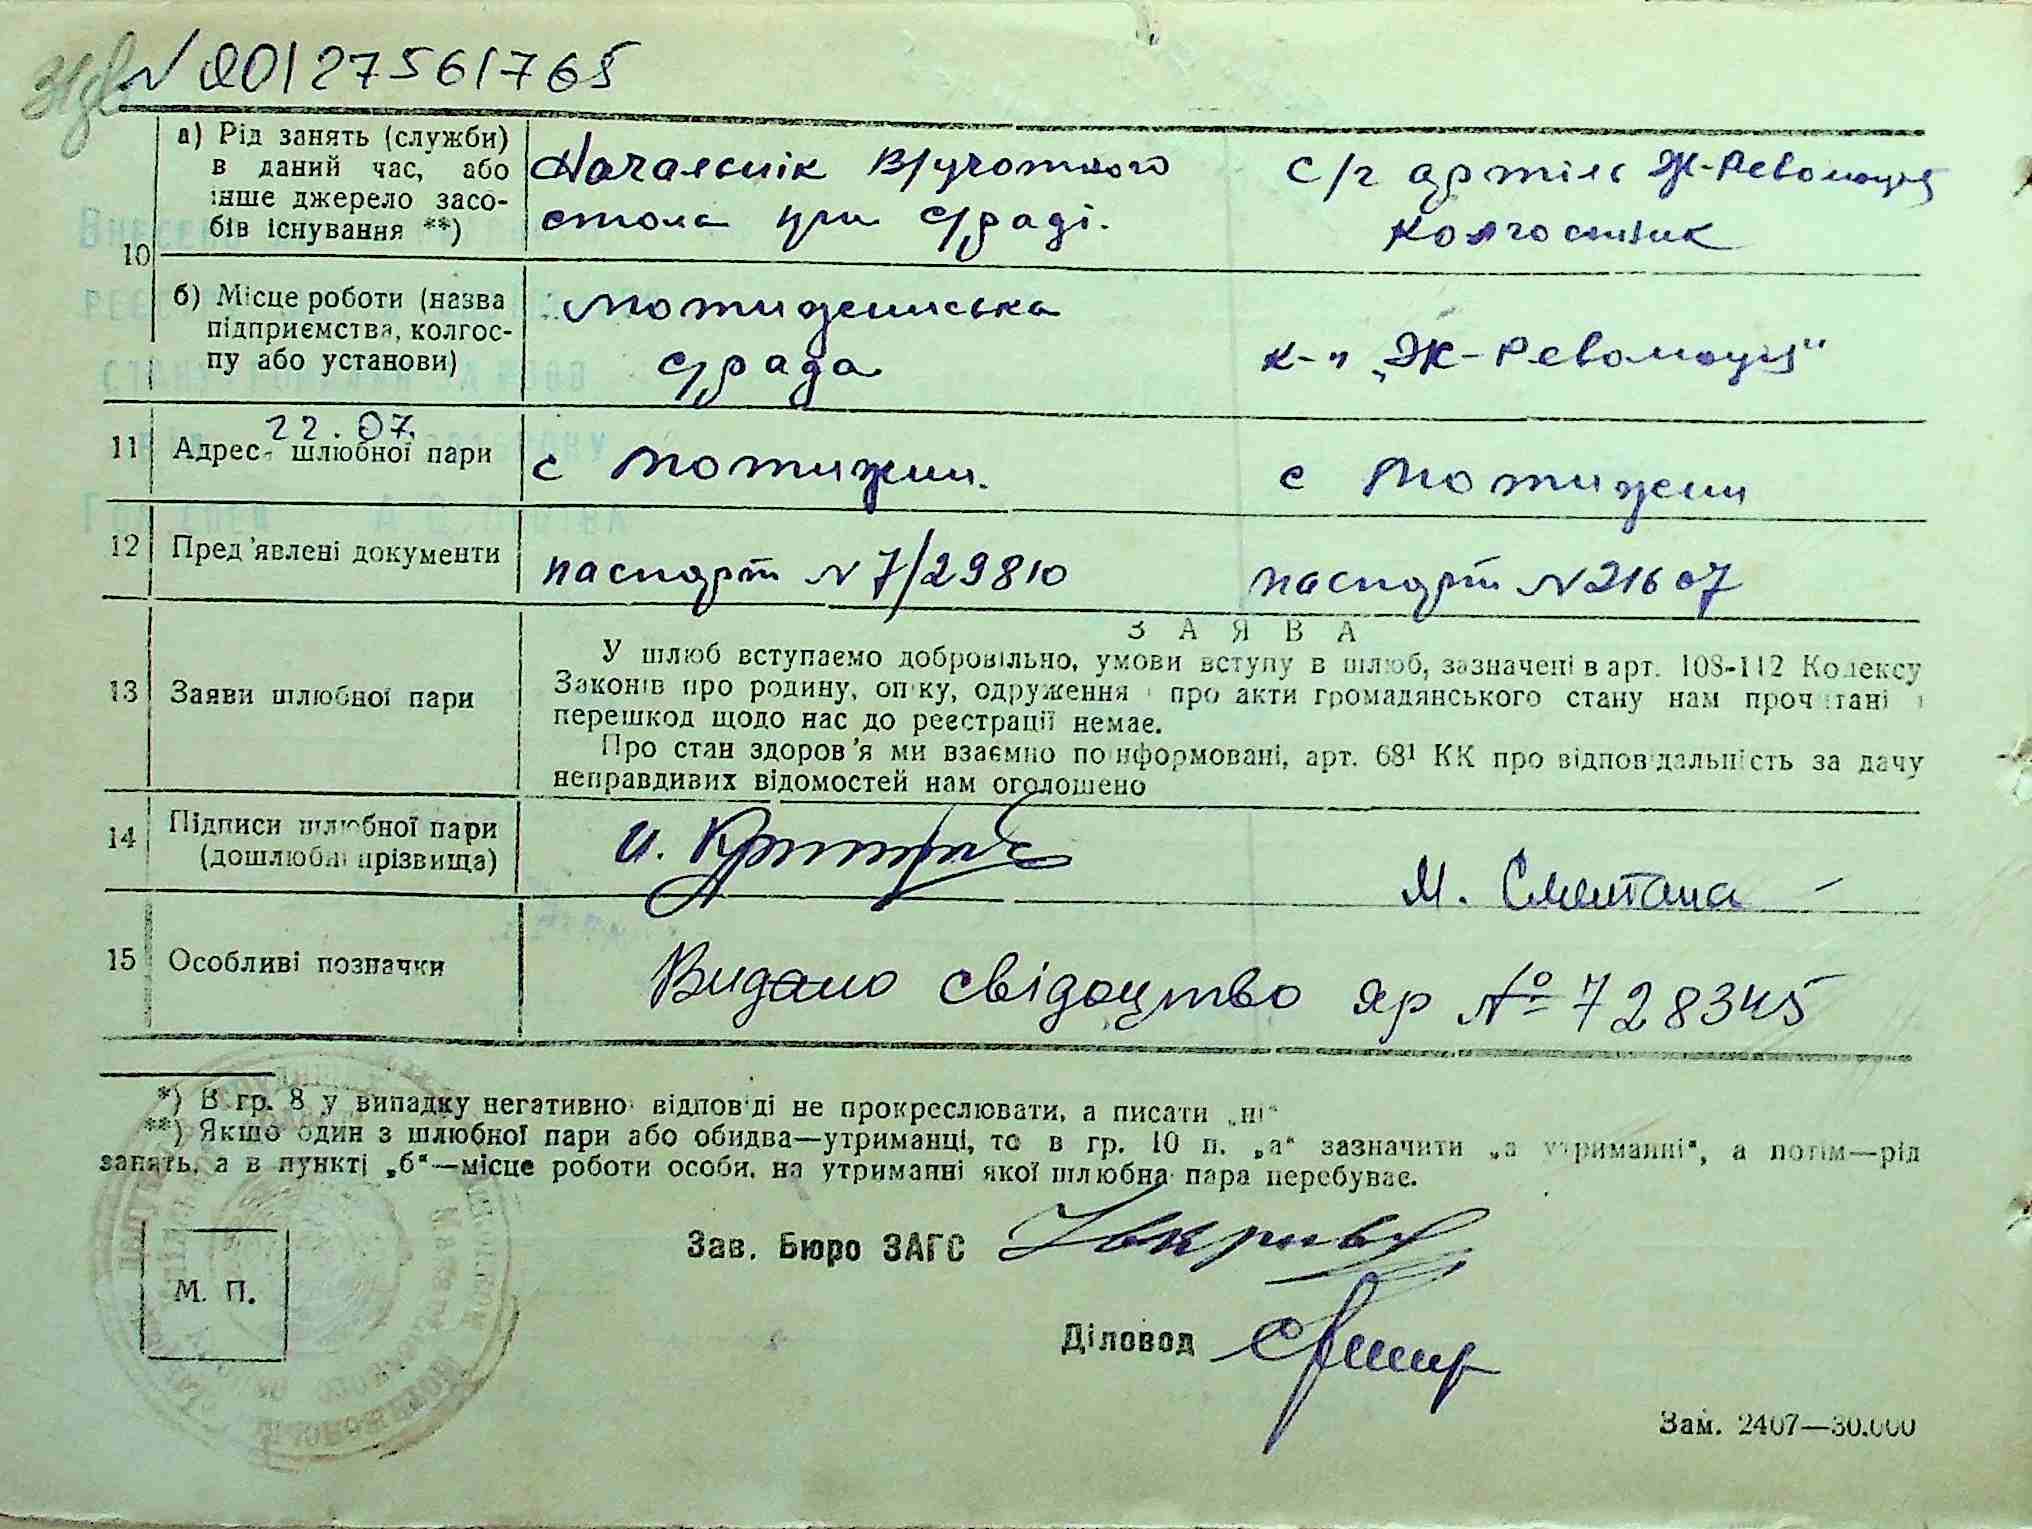 № 00127561765
а) Рід занять (служби) в даний час, або інше джерело засобів існування **)
Начальник В/учотного
стола при с/раді.
с/г артіль Ж-Революції
колгоспник
10
б) Місце роботи (назва підприємства, колгоспу або установи)
Мотиженська
с/рада
к-п „Ж-Революції"
22.07.
11 Адрес шлюбної пари
с Мотижин.
с Мотижени
12 Пред'явлені документи
паспорт № 7/29810
паспорт № 21607
ЗАЯВА
13 Заяви шлюбної пари
У шлюб вступаємо добровільно, умови вступу в шлюб, зазначені в арт. 108-112 Кодексу
Законів про родину, опіку, одруження і про акти громадянського стану нам прочитані і
перешкод щодо нас до реєстрації немає.
Про стан здоров'я ми взаємно поінформовані, арт. 68¹ КК про відповідальність за дачу
неправдивих відомостей нам оголошено
14 Підписи шлюбної пари
(дошлюбні прізвища)
М. Сметана
15 Особливі позначки
Видано свідоцтво яр № 728345
*) В гр. 8 у випадку негативної відповіді не прокреслювати, а писати „ні"
**) Якщо один з шлюбної пари або обидва—утриманці, то в гр. 10 п. „а" зазначити „з утриманні", а потім—рід
занять, а в пункті „б"—місце роботи особи, на утриманні якої шлюбна пара перебуває.
Зав. Бюро ЗАГС
М. П.
Діловод
Зам. 2407—30.000